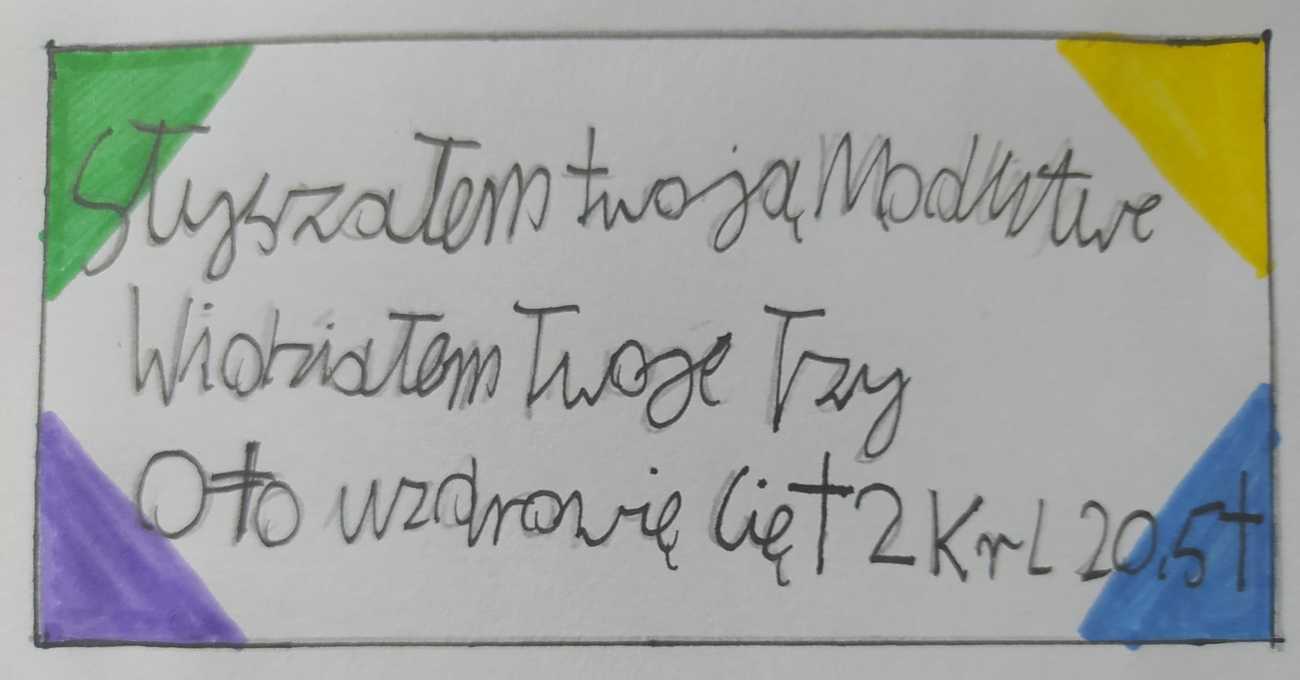 Słyszałem twoją Modlitwe
Widziałem Twoje Łzy
Oto uzdrowię Cię † 2 Krl 20.5 †